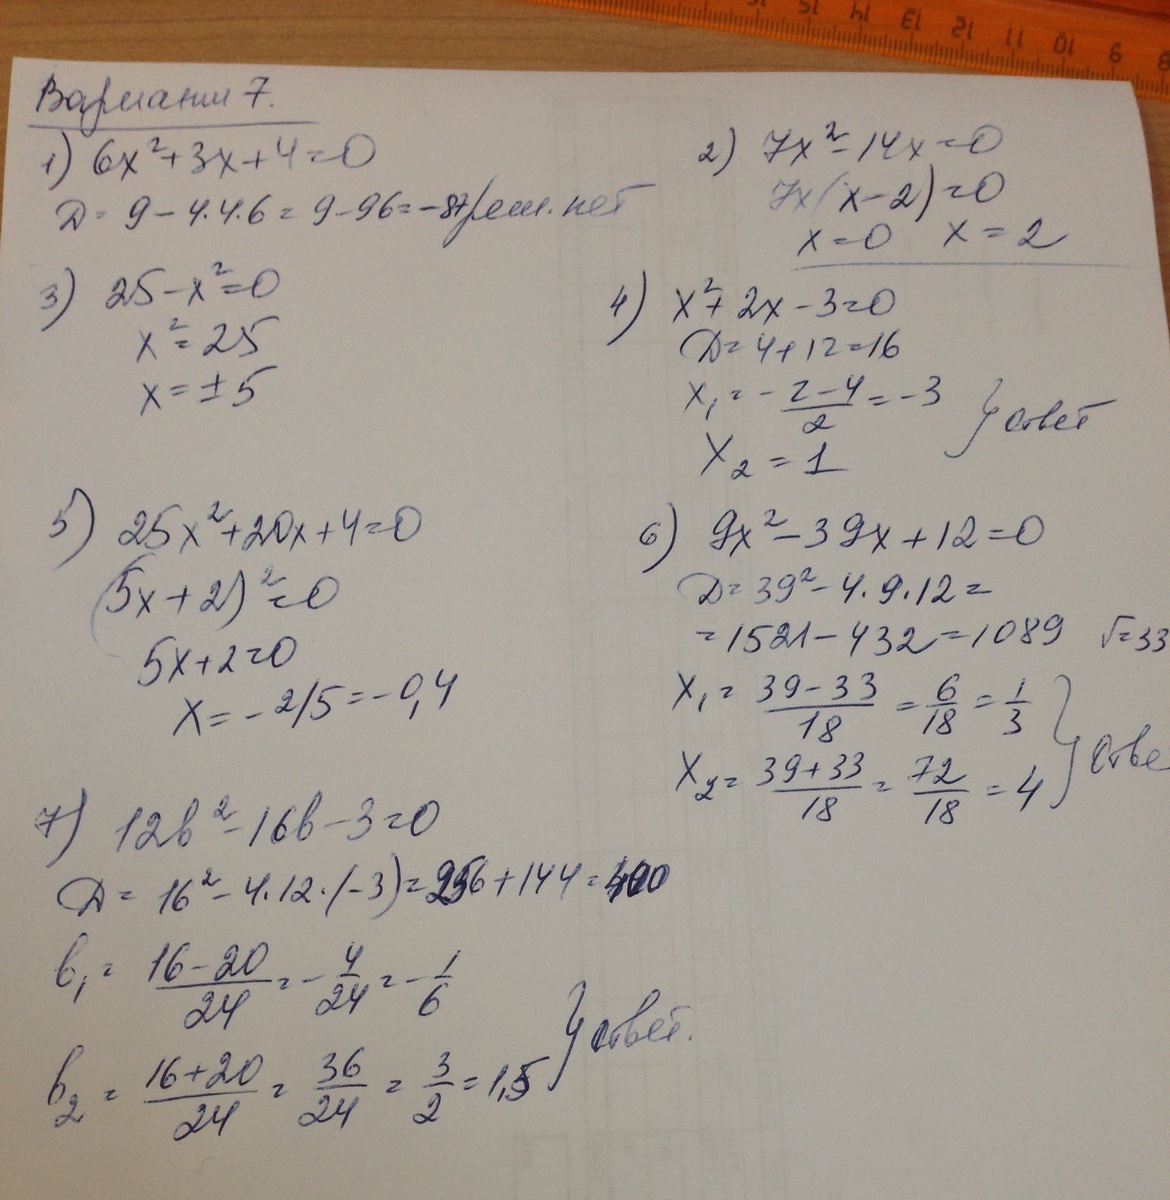 Вариант 7.
1) 6x²+3x+4=0
D = 9-4.4.6 = 9-96=-87 реш. нет
2) 7x²-14x=0
7x(x-2)=0
x=0 x=2
3) 25-x²=0
x²=25
x=±5
4) x²+2x-3=0
D=4+12=16
x₁ = -2-4/2 = -3
x₂ = 1
} ответ
5) 25x²+20x+4=0
(5x+2)²=0
5x+2=0
x=-2/5=-0,4
6) 9x²-39x+12=0
D=39²-4.9.12=
=1521-432=1089 √=33
x₁= 39-33/18 = 6/18 = 1/3
x₂= 39+33/18 = 72/18 = 4
} отве
7) 12b²-16b-3=0
D= 16²-4.12.(-3)=256+144=400
b₁= 16-20/24 = -4/24 = -1/6
b₂ = 16+20/24 = 36/24 = 3/2 = 1,5
} ответ.
16 15 14 13 12 11 10 9 8